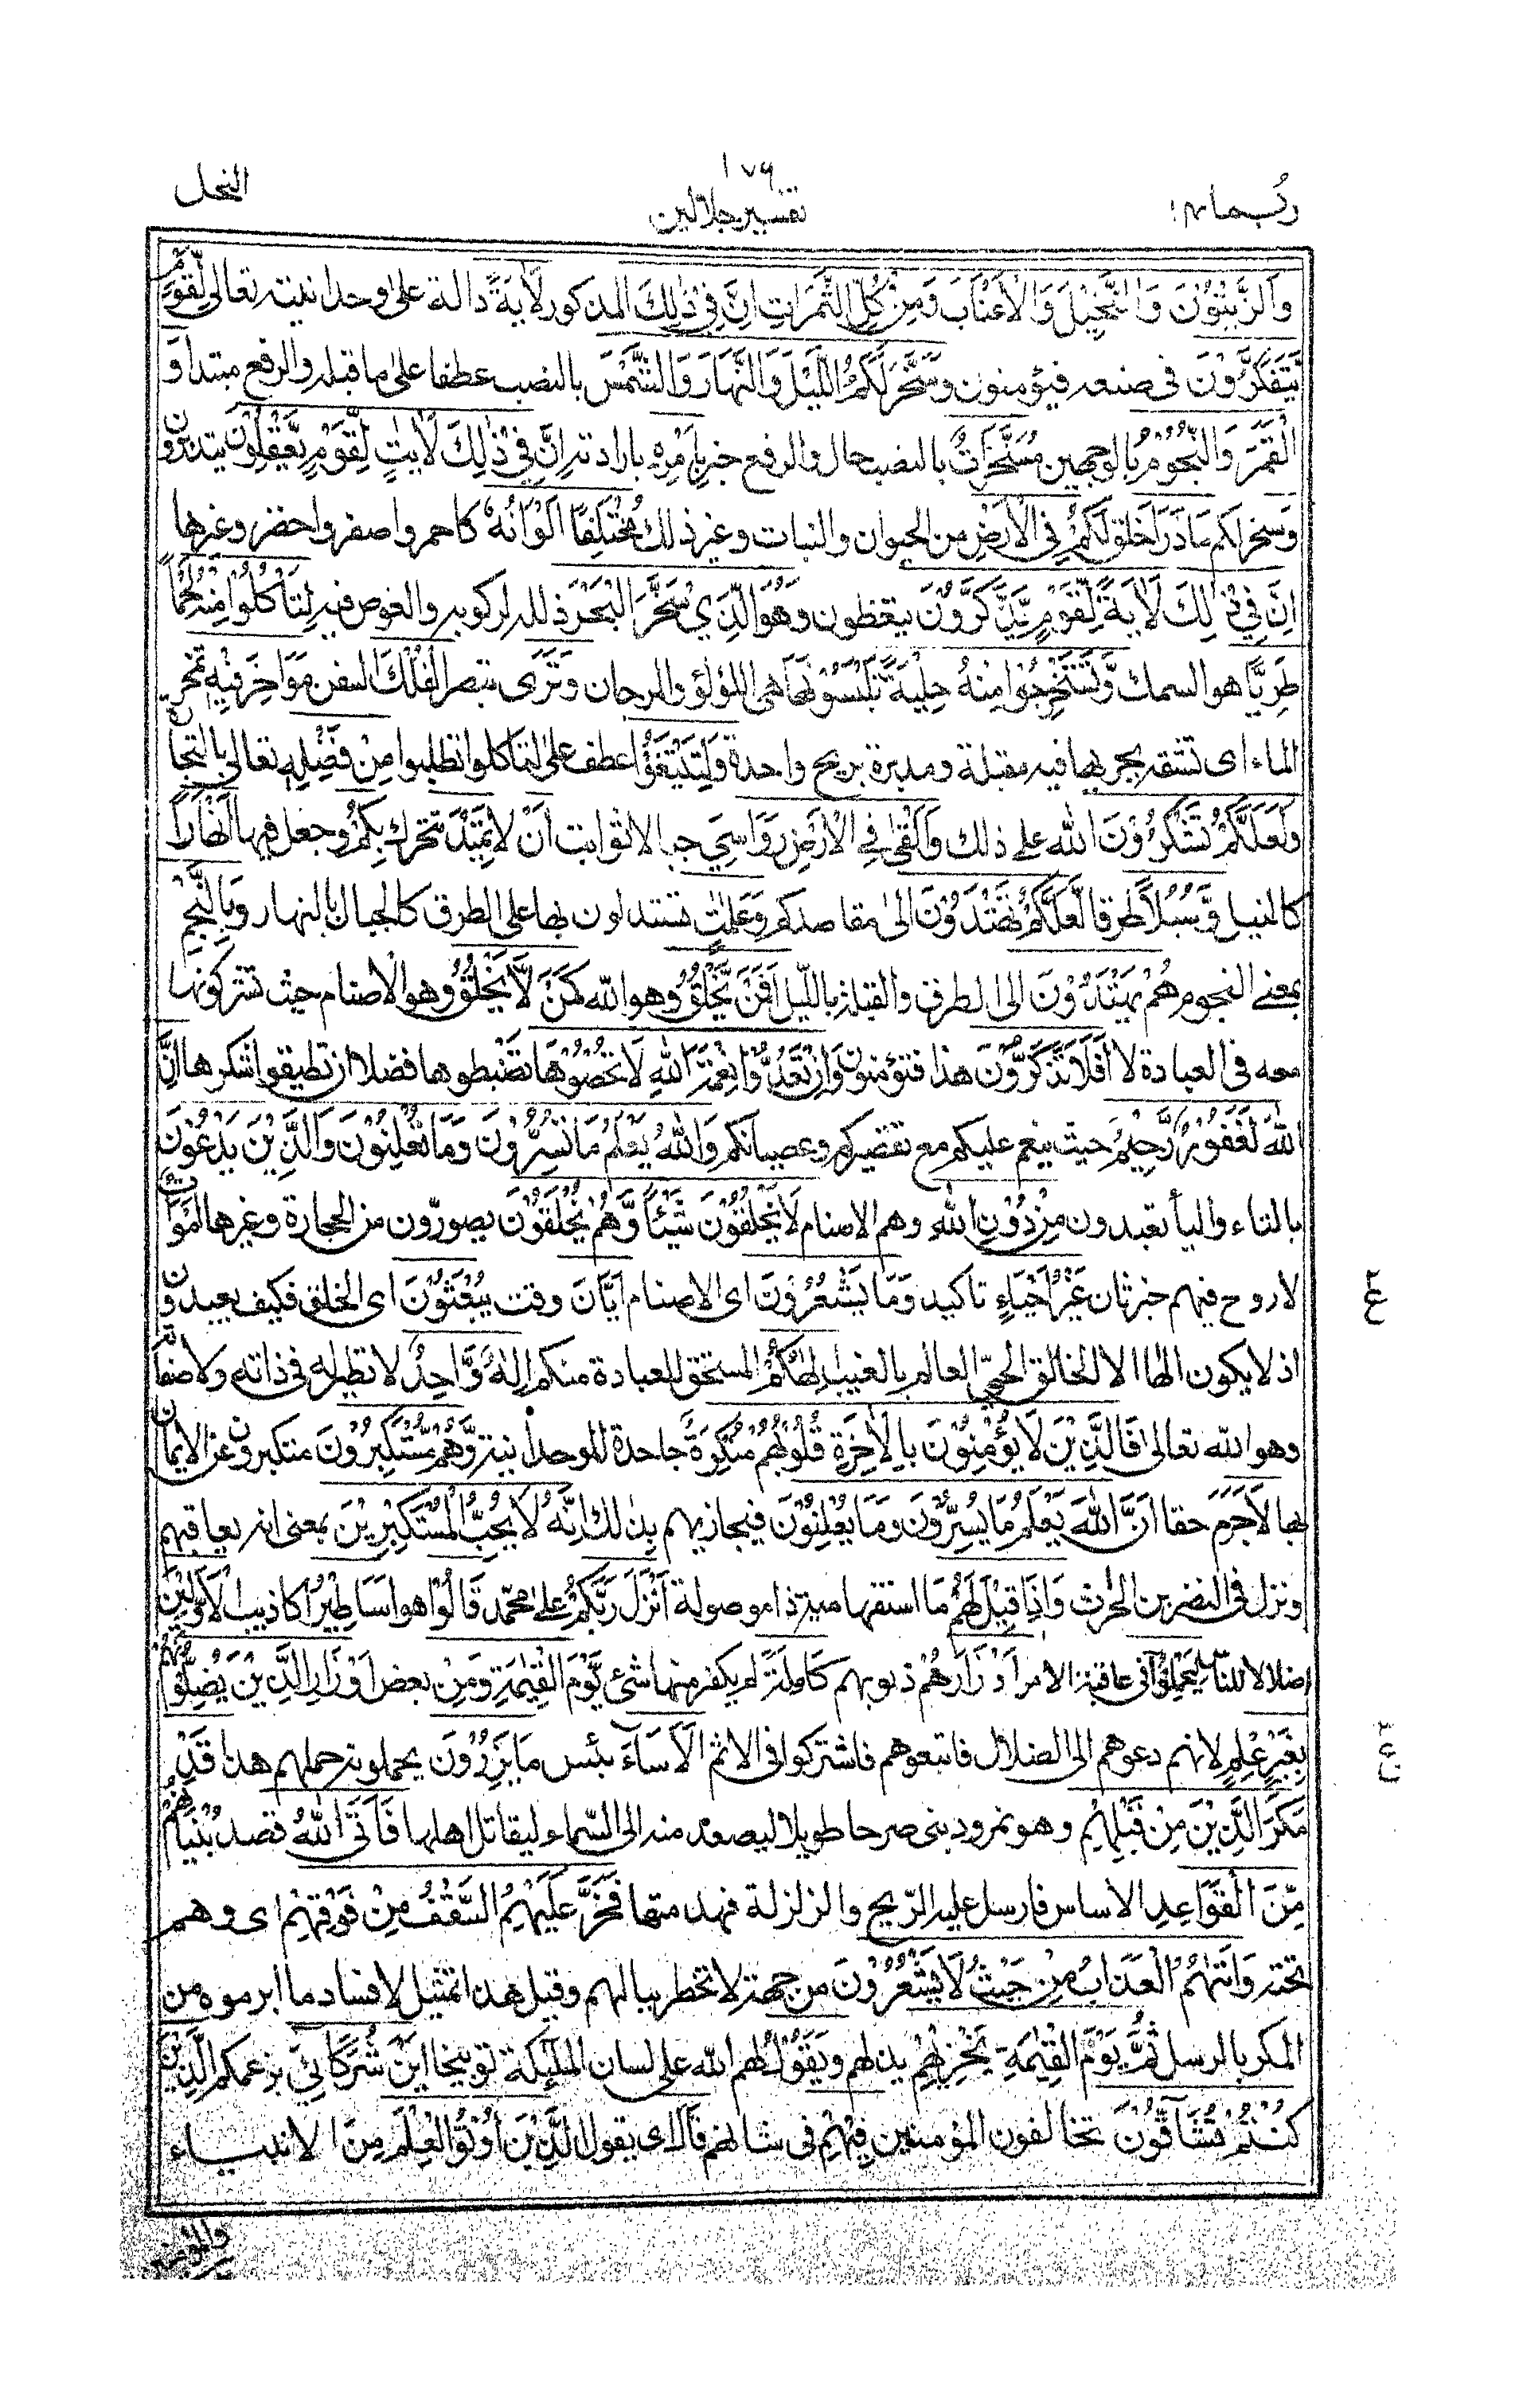 ١٧٩
ربما ١٤
تفسير جلالين
النحل
وَالزَّيْتُوْنَ وَالنَّخِيْلَ وَالْاَعْنَابَ وَمِنْ كُلِّ الثَّمَرٰتِ اِنَّ فِيْ ذٰلِكَ المذكور لَاٰيَةً دالة على وحدانيته تعالى لِّقَوْمٍ
يَّتَفَكَّرُوْنَ في صنعه فيؤمنون وَسَخَّرَ لَكُمُ الَّيْلَ وَالنَّهَارَ وَالشَّمْسَ بالنصب عطفا على ما قبله والرفع مبتدأ وَ
الْقَمَرَ وَالنُّجُوْمُ بالوجهين مُسَخَّرٰتٌ بالنصب حال والرفع خبر بِاَمْرِهٖ بارادته اِنَّ فِيْ ذٰلِكَ لَاٰيٰتٍ لِّقَوْمٍ يَّعْقِلُوْنَ يتدبرون
وَسخر لكم مَا ذَرَاَ خلق لَكُمْ فِي الْاَرْضِ من الحيوان والنبات وغير ذلك مُخْتَلِفًا اَلْوَانُهٗ كاحمر واصفر واخضر وغيرها
اِنَّ فِيْ ذٰلِكَ لَاٰيَةً لِّقَوْمٍ يَّذَّكَّرُوْنَ يتعظون وَهُوَ الَّذِيْ سَخَّرَ الْبَحْرَ ذلله لركوبه والغوص فيه لِتَاْكُلُوْا مِنْهُ لَحْمًا
طَرِيًّا هو السمك وَّتَسْتَخْرِجُوْا مِنْهُ حِلْيَةً تَلْبَسُوْنَهَا هى اللؤلؤ والمرجان وَتَرَى تبصر الْفُلْكَ السفن مَوَاخِرَ فِيْهِ تمخر
الماء اى تشقه بجريها فيه مقبلة ومدبرة بريح واحدة وَلِتَبْتَغُوْا عطف على لتاكلوا تطلبوا مِنْ فَضْلِهٖ تعالى بالتجارة
وَلَعَلَّكُمْ تَشْكُرُوْنَ الله على ذلك وَاَلْقٰى فِي الْاَرْضِ رَوَاسِيَ جبالا ثوابت اَنْ لا تَمِيْدَ تتحرك بِكُمْ وجعل فيها اَنْهَارًا
كالنيل وَّسُبُلًا طرقا لَّعَلَّكُمْ تَهْتَدُوْنَ الى مقاصدكم وَعَلٰمٰتٍ تستدلون بها على الطرق كالجبال بالنهار وَبِالنَّجْمِ
بمعنى النجوم هُمْ يَهْتَدُوْنَ الى الطرق والقبلة بالليل اَفَمَنْ يَّخْلُقُ وهو الله كَمَنْ لَّا يَخْلُقُ وهو الاصنام حيث تشركونها
معه فى العبادة لا اَفَلَا تَذَكَّرُوْنَ هذا فتؤمنون وَاِنْ تَعُدُّوْا نِعْمَةَ اللّٰهِ لَا تُحْصُوْهَا تضبطوها فضلا ان تطيقوا شكرها اِنَّ
اللّٰهَ لَغَفُوْرٌ رَّحِيْمٌ حيث ينعم عليكم مع تقصيركم وعصيانكم وَاللّٰهُ يَعْلَمُ مَا تُسِرُّوْنَ وَمَا تُعْلِنُوْنَ وَالَّذِيْنَ يَدْعُوْنَ
بالتاء والياء تعبدون مِنْ دُوْنِ اللّٰهِ وهم الاصنام لَا يَخْلُقُوْنَ شَيْئًا وَّهُمْ يُخْلَقُوْنَ يصورون من الحجارة وغيرها اَمْوَاتٌ
لا روح فيهم خبر ثان غَيْرُ اَحْيَاءٍ تاكيد وَمَا يَشْعُرُوْنَ اى الاصنام اَيَّانَ وقت يُبْعَثُوْنَ اى الخلق فكيف يعبدون
اذ لا يكون الها الا الخالق الحى العالم بالغيب اِلٰهُكُمْ المستحق للعبادة منكم اِلٰهٌ وَّاحِدٌ لا نظير له فى ذاته ولا صفاته
وهو الله تعالى فَالَّذِيْنَ لَا يُؤْمِنُوْنَ بِالْاٰخِرَةِ قُلُوْبُهُمْ مُّنْكِرَةٌ جاحدة للوحدانية وَّهُمْ مُّسْتَكْبِرُوْنَ متكبرون عن الايمان
بها لَاجَرَمَ حقا اَنَّ اللّٰهَ يَعْلَمُ مَا يُسِرُّوْنَ وَمَا يُعْلِنُوْنَ فيجازيهم بذلك اِنَّهٗ لَا يُحِبُّ الْمُسْتَكْبِرِيْنَ بمعنى انه يعاقبهم
ونزل فى النضر بن الحرث وَاِذَا قِيْلَ لَهُمْ مَا استفهامية ذا موصولة اَنْزَلَ رَبُّكُمْ على محمد قَالُوْا هو اَسَاطِيْرُ اكاذيب الْاَوَّلِيْنَ
اضلالا للناس لِيَحْمِلُوْا فى عاقبة الامر اَوْزَارَهُمْ ذنوبهم كَامِلَةً لم يكفر منها شئ يَّوْمَ الْقِيٰمَةِ وَمِنْ بعض اَوْزَارِ الَّذِيْنَ يُضِلُّوْنَهُمْ
بِغَيْرِ عِلْمٍ لانهم دعوهم الى الضلال فاتبعوهم فاشتركوا فى الاثم اَلَا سَاءَ بئس مَا يَزِرُوْنَ يحملونه حملهم هذا قَدْ
مَكَرَ الَّذِيْنَ مِنْ قَبْلِهِمْ وهو نمرود بنى صرحا طويلا ليصعد منه الى السماء ليقاتل اهلها فَاَتَى اللّٰهُ قصد بُنْيَانَهُمْ
مِّنَ الْقَوَاعِدِ الاساس فارسل عليه الريح والزلزلة فهدمتها فَخَرَّ عَلَيْهِمُ السَّقْفُ مِنْ فَوْقِهِمْ اى وهم
تحته وَاَتٰهُمُ الْعَذَابُ مِنْ حَيْثُ لَا يَشْعُرُوْنَ من جهة لا تخطر ببالهم وقيل هذا تمثيل لافساد ما ابرموه من
المكر بالرسل ثُمَّ يَوْمَ الْقِيٰمَةِ يُخْزِيْهِمْ يذلهم وَيَقُوْلُ لهم الله على لسان الملٰئكة توبيخا اَيْنَ شُرَكَائِيَ بزعمكم الَّذِيْنَ
كُنْتُمْ تُشَاقُّوْنَ تخالفون المؤمنين فِيْهِمْ فى شانهم قَالَ اى يقول الَّذِيْنَ اُوْتُوا الْعِلْمَ مِنَ الانبياء
ع